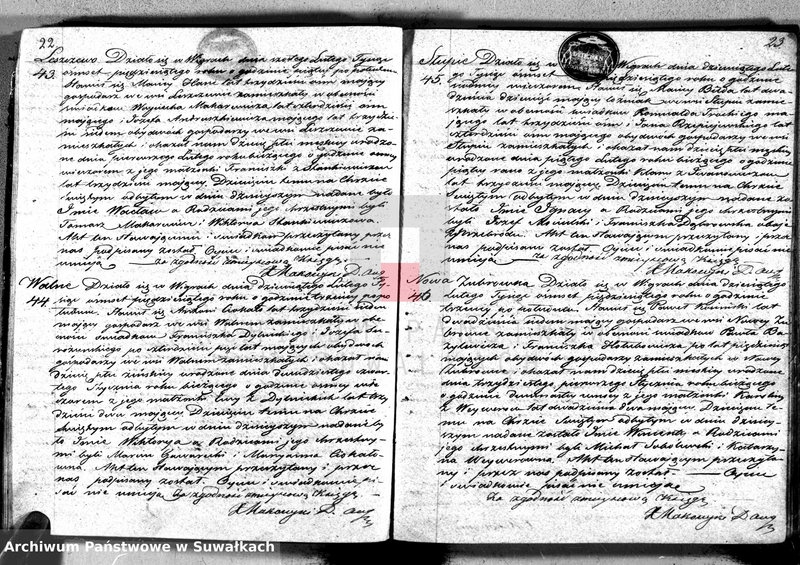 22
Leszczewo Działo się w Wigrach dnia szóstego Lutego Tysiąc
43. ośmset pięćdziesiątego roku o godzinie piątej po południu
Stawił się lat trzydzieści ośm mający
gospodarz we wsi Leszczewie zamieszkały w obecności
świadków Wojciecha Makarewicza lat czterdzieści ośm
mającego i Józefa Andruszkiewicza mającego lat trzydzie-
ści siedm obydwóch gospodarzy we wsi Leszczewie za-
mieszkałych i okazał nam dziecię płci męskiej urodzo-
ne dnia pierwszego Lutego roku bieżącego o godzinie ósmej
wieczorem z jego małżonki Franciszki z Stankiewiczów
lat trzydzieści mającej. Dziecięciu temu na Chrzcie
świętym odbytym w dniu dzisiejszym nadane było
Imie Wacław a Rodzicami jego chrzestnymi byli
Tomasz Makarewicz i Wiktorya Stankiewiczowa.
Akt ten stawającemu i świadkom przeczytany przez
nas podpisany został. Ojciec i świadkowie pisać nie
umieją Za zgodność z Księgą
X Makowski D. Aug
Walne Działo się w Wigrach dnia dziewiątego Lutego Ty-
44. siąc ośmset pięćdziesiątego roku o godzinie trzeciej popo-
łudniu. Stawił się Antoni lat trzydzieści siedm
mający gospodarz we wsi Walnem zamieszkały w obe-
cności świadków Franciszka i Józefa
po czterdzieści pięć lat mających obydwóch
gospodarzy we wsi Walnem zamieszkałych i okazał nam
dziecię płci żeńskiej urodzone dnia dwudziestego czwar-
tego Stycznia roku bieżącego o godzinie ósmej wie-
czorem z jego małżonki Ewy z lat trzy-
dzieści dwa mającej Dziecięciu temu na Chrzcie
świętym odbytym w dniu dzisiejszym nadane by-
ło Imie Wiktorya a Rodzicami jego chrzestny-
mi byli Marcin i Maryanna
Akt ten stawającym przeczytany i przez
nas podpisany został. Ojciec i świadkowie pi-
sać nie umieją Za zgodność z Księgą
X Makowski D. Aug
23
Słupie Działo się w Wigrach dnia dziewiątego Lute-
45. go Tysiąc ośmset pięćdziesiątego roku o godzinie
wieczorem Stawił się lat dwa-
dzieścia dziewięć mający we wsi Słupie zamie-
szkały w obecności świadków Romualda ma-
jącego lat trzydzieści ośm i Jana lat
czterdzieści ośm mającego obydwóch gospodarzy we wsi
Słupie zamieszkałych i okazał nam dziecię płci męskiej
urodzone dnia piątego Lutego roku bieżącego o godzinie
piątej rano z jego małżonki z Iwanowiczów
lat trzydzieści mającej. Dziecięciu temu na Chrzcie
świętym odbytym w dniu dzisiejszym nadane zo-
stało Imie Ignacy a Rodzicami jego chrzestnymi
byli Józef i Franciszka Dąbrowska oboje
Akt ten stawającemu przeczytany i przez
nas podpisany został. Ojciec i świadkowie pisać nie
umieją Za zgodność z Księgą
X Makowski D. Aug
Nowa Żubrowka Działo się w Wigrach dnia dziewiątego
46. Lutego Tysiąc ośmset pięćdziesiątego roku o godzinie
trzeciej po południu. Stawił się Paweł lat
dwadzieścia siedm mający gospodarz we wsi Nowej Żu-
browce zamieszkały w obecności świadków Ba-
zylewicza i Franciszka po lat pięćdziesiąt
mających obydwóch gospodarzy zamieszkałych w Nowej
Żubrowce i okazał nam dziecię płci męskiej urodzone
dnia trzydziestego pierwszego Stycznia roku bieżącego
o godzinie dwunastej w nocy z jego małżonki Karoliny
z lat dwadzieścia dwa mającej. Dziecięciu te-
mu na Chrzcie świętym odbytym w dniu dzisiej-
szym nadane zostało Imie Wincenty a Rodzicami
jego chrzestnymi byli Michał Sokołowski i Katarzy-
na Akt ten stawającym przeczyta-
ny i przez nas podpisany został. Ojciec
i świadkowie pisać nie umieją
Za zgodność z Księgą
X Makowski D Aug
Archiwum Państwowe w Suwałkach